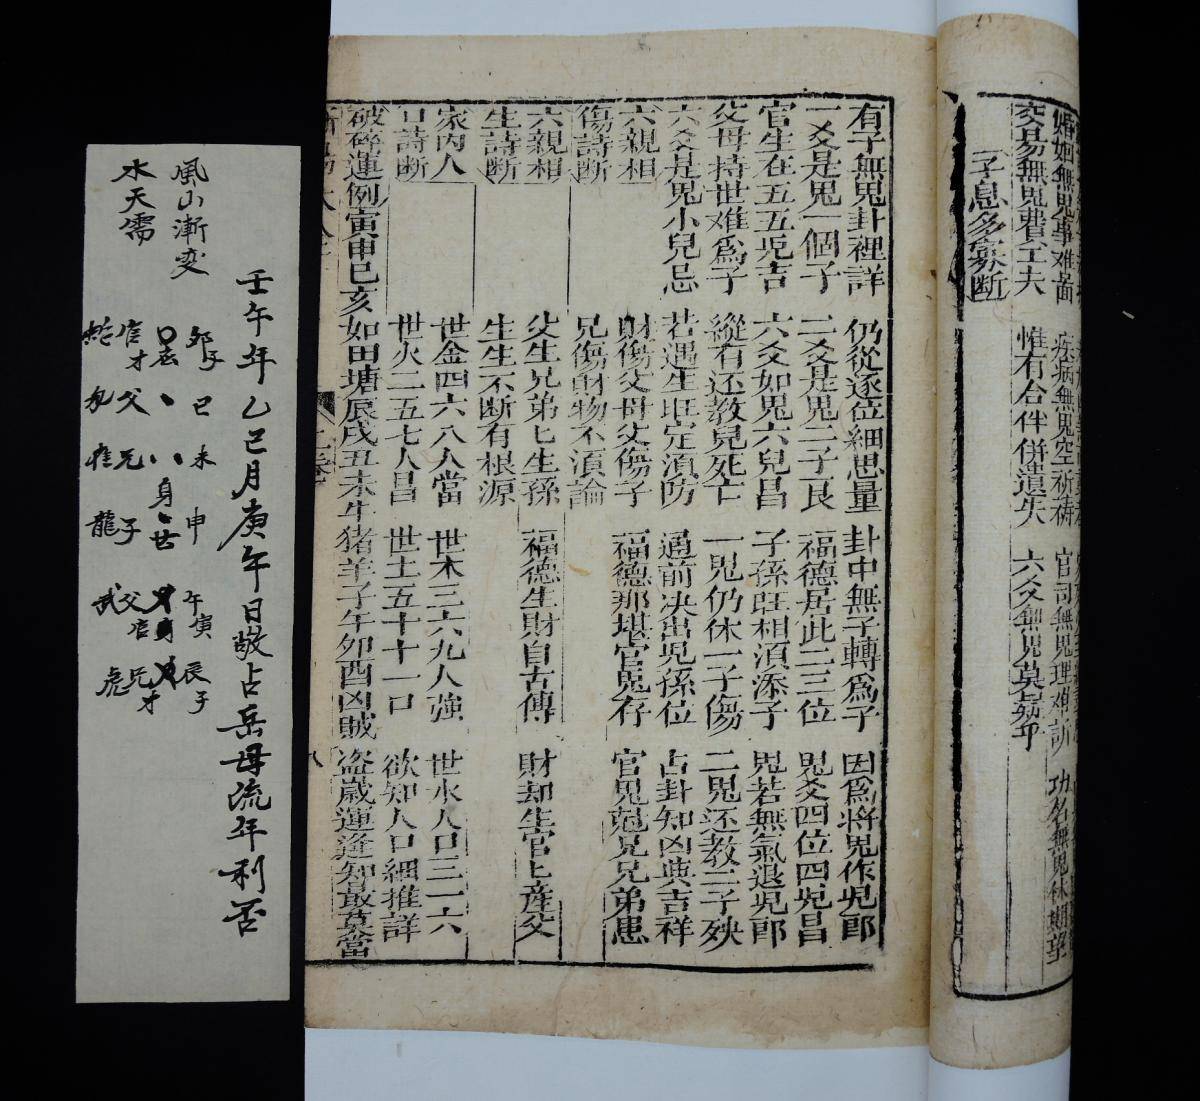 婚姻無鬼事难啚 疾病無鬼空祈祷 官司無鬼理难訴 功名無鬼休期望
交易無鬼費工夫 惟有合伴併遺失 六爻無鬼莫
子息多寡断
有子無鬼卦裡詳 仍從逐位細思量 卦中無子轉為子 因為將鬼作児郎
一爻是鬼一個子 二爻是鬼二子良 福德居此二三位 鬼爻四位四児昌
官生在五五児吉 六爻如鬼六兒昌 子孫旺相湏添子 鬼若無氣退児郎
父母持世难為子 縱有还教兒死亡 一鬼仍休一子傷 二鬼还教二子殃
六爻是鬼小兒忌 若遇生旺定湏防 通前决出児孫位 占卦知凶與吉祥
六親相 財傷父母父傷子 福德那堪官鬼存 官鬼尅兄兄弟患
傷詩断 兄傷財物不湏論
六親相 父生兄弟匕生孫 福德生財自古傳 財却生官匕産父
生詩断 生生不断有根源
家内人 世金四六八人當 世木三六九人強 世水人口三一六
口詩断 世火二五七人昌 世土五十十一口 欲知人口細推詳
破碎運例寅申巳亥如田塘辰戌丑未牛猪羊子午卯酉凶贼盗歲運逢知最莫當
八
壬午年乙巳月庚午日敬占岳母流年利否
風山漸变
水天需
卯子 巳 未 申 午寅 辰子
官才 父 兄 子 父官 兄才
蛇 勾 雀 龍 武 虎